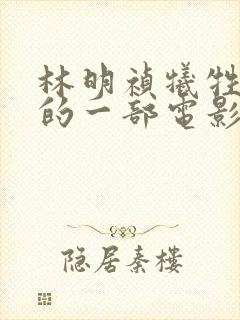 林明禎犠牲
的一部電影
隐居秦樓